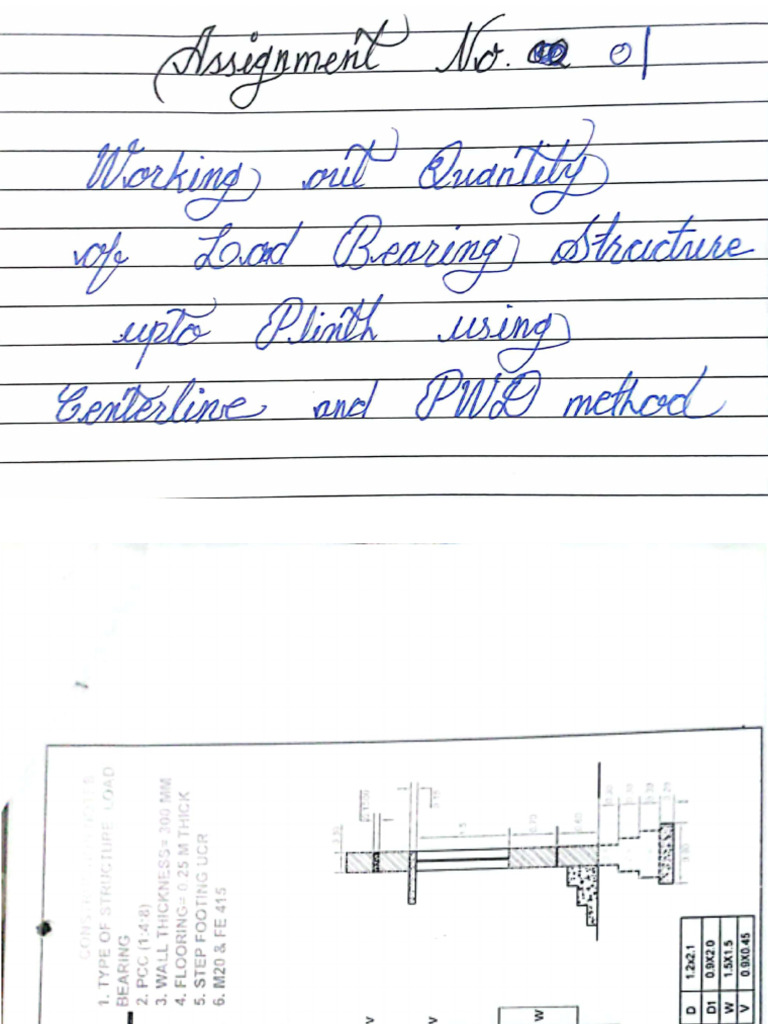 Assignment No. 01
Working out Quantity
of Load Bearing Structure
upto Plinth using
Centerline and PWD method
1. TYPE OF STRUCTURE LOAD
BEARING
2. PCC (1:4:8)
3. WALL THICKNESS= 300 MM
4. FLOORING= 0.25 M THICK
5. STEP FOOTING UCR
6. M20 & FE 415
V
V
W
D 1.2x2.1
D1 0.9X2.0
W 1.5X1.5
V 0.9X0.45